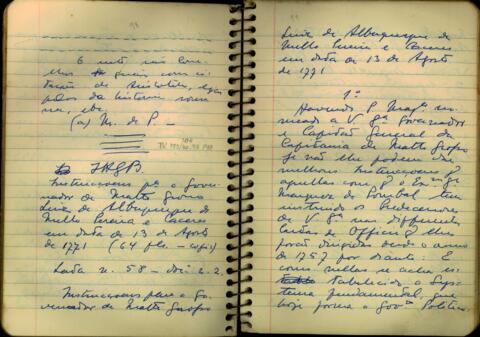 E muito mais Con-
selhos geraes com ci-
tação de Aristoteles, exem-
plos da historia roma-
na, etc.
(a) M. de P. —
IHGB
Instrucçoens pª o Gover-
nador de Matto Grosso
Luiz de Albuquerque de
Mello Pereira e Caceres
em data de 13 de Agosto
de 1771 (64 fls. – copia)
Lata n. 58 – doc. 2.
Instrucçoens para o Go-
vernador de Matto Grosso
Luiz de Albuquerque de
Mello Pereira e Caceres
em data de 13 de Agosto
de 1771
1º
Havendo S. Magᵉ no-
meado a V Sª Governador
e Capitão General da
Capitania de Matto Grosso
se não lhe podem dar
melhores Instrucçoens q
aquellas com q o Exᵐᵒ Sʳ
Marquez de Pombal tem
instruido os Predecessores
de V Sª nas differentes
Cartas de Officio q lhes
forão dirigidas desde o anno
de 1757 por diante: E
como nellas se acha es-
tabelecido o Sys-
tema fundamental, que
hoje forma o Govº Politico